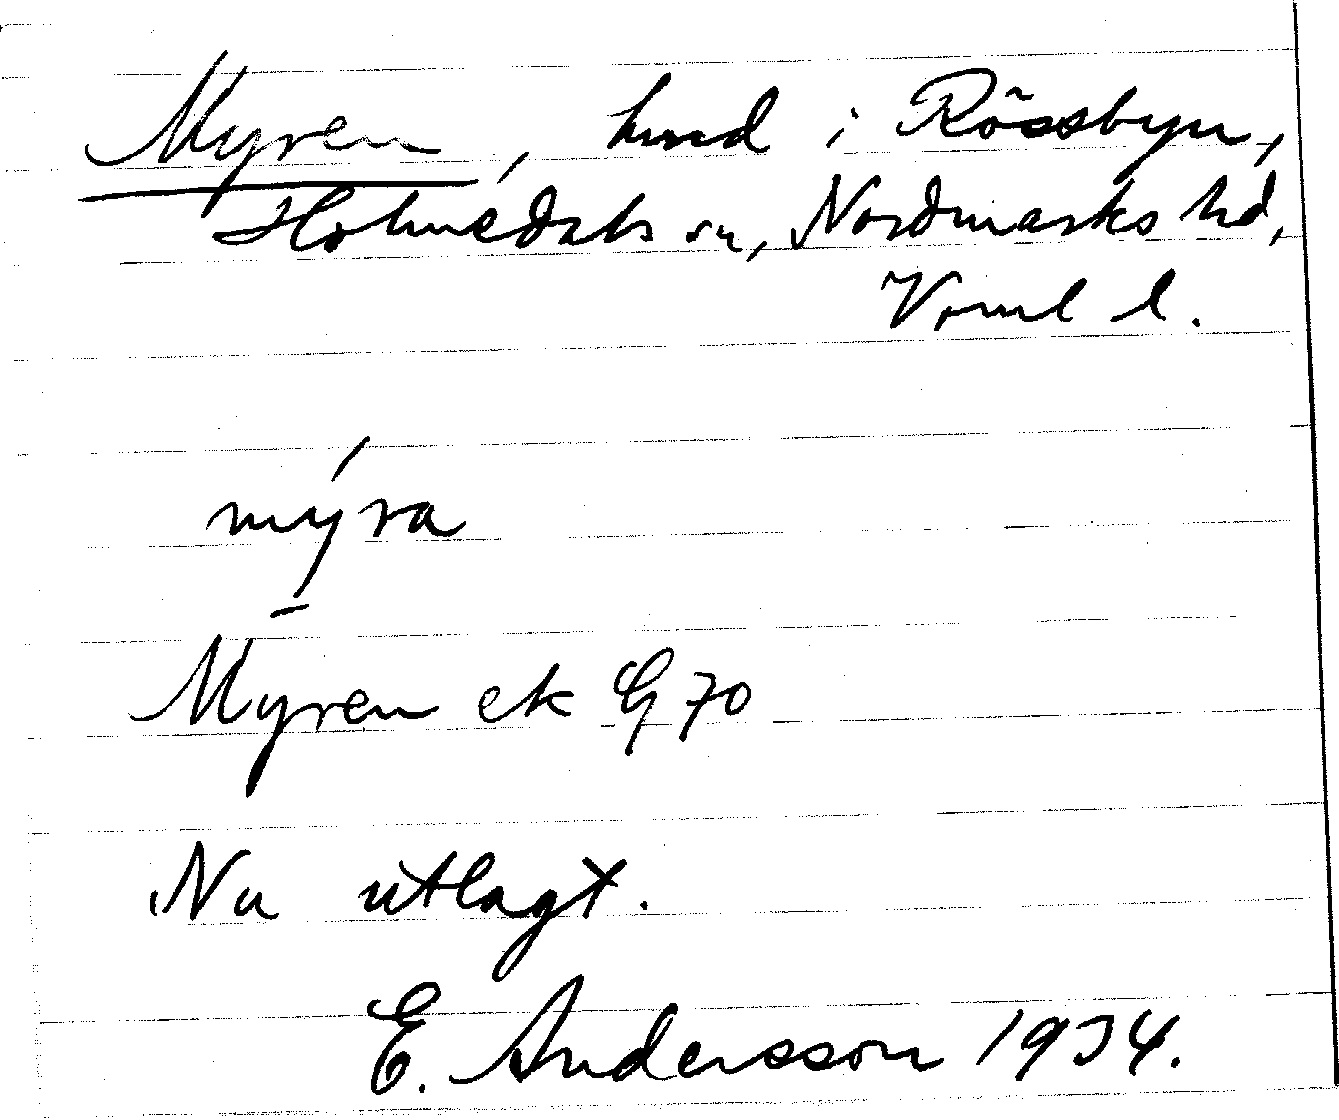 Myren, hmd i Rössbyn,
Holmedals sn, Nordmarks hd,
Vrml l.
mýra
Myren ek G 70
Nu utlagt.
E. Andersson 1934.